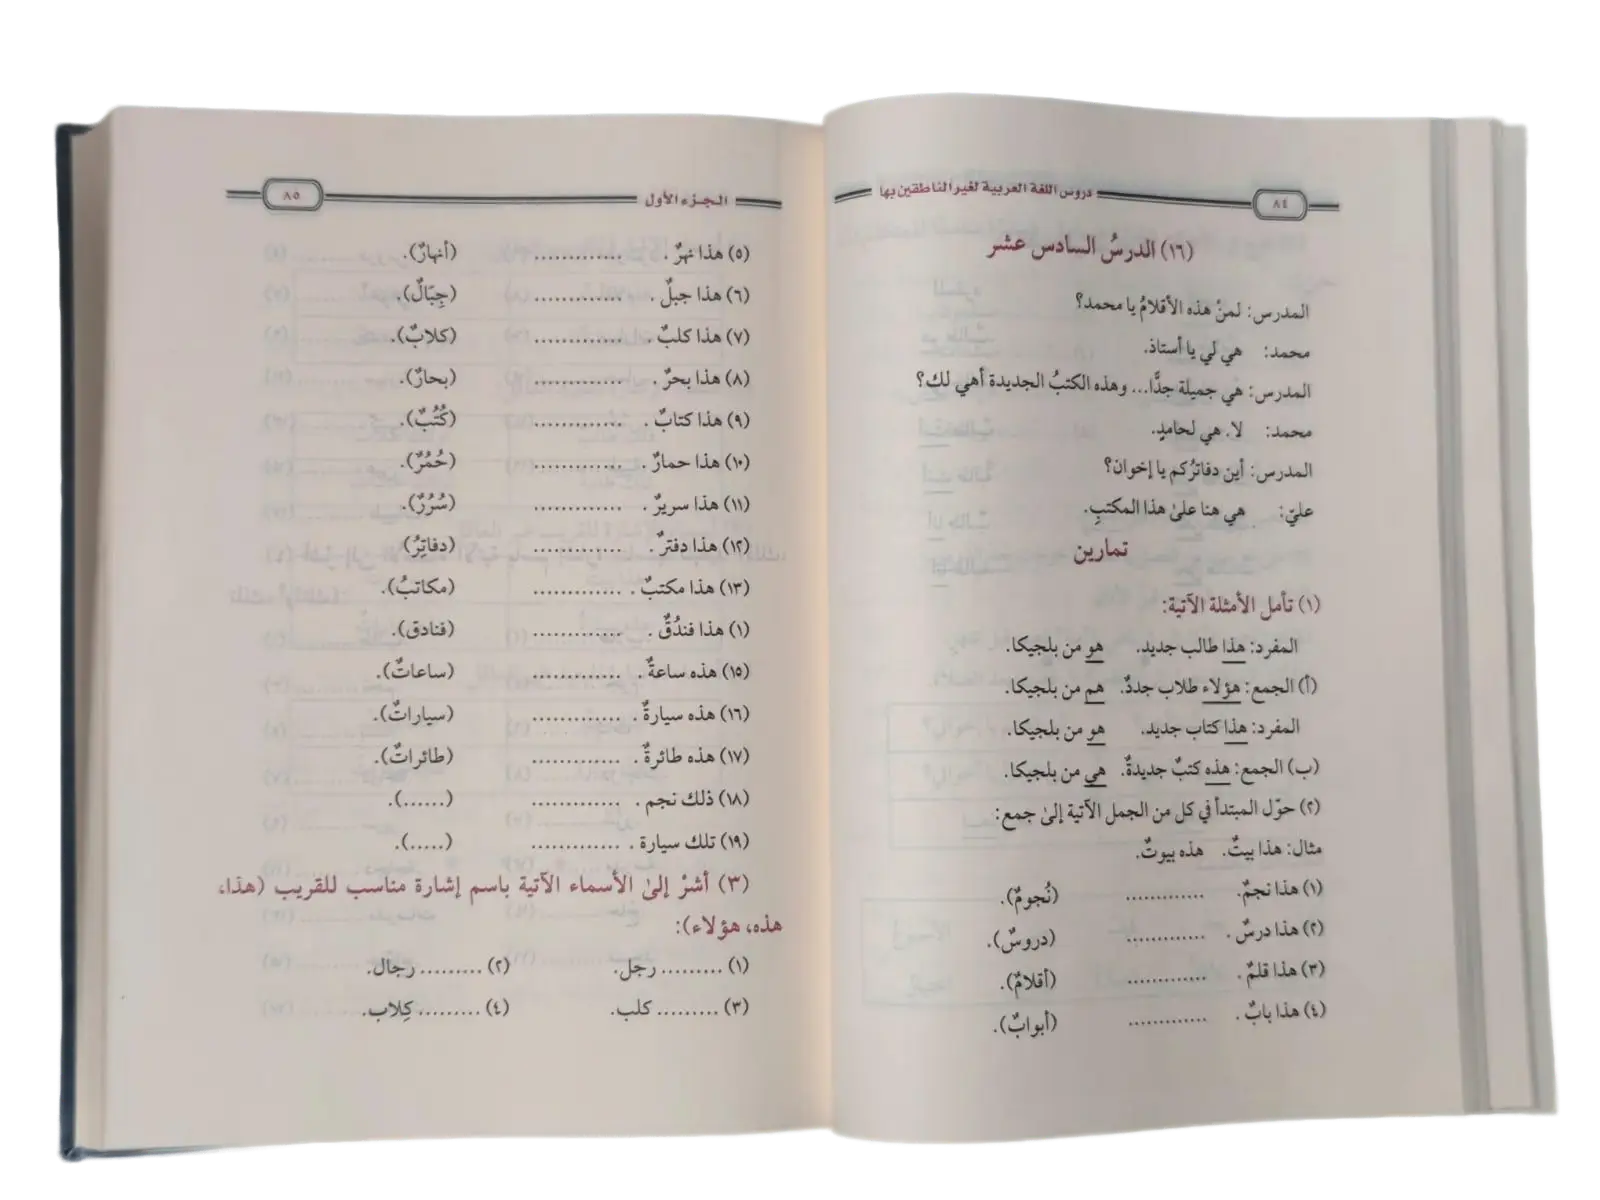 دروس اللغة العربية لغير الناطقين بها ٨٤
(١٦) الدرسُ السادس عشر
المدرس: لمنْ هذه الأقلامُ يا محمد؟
محمد: هي لي يا أستاذ.
المدرس: هي جميلة جدًّا... وهذه الكتبُ الجديدة أهي لك؟
محمد: لا. هي لحامدٍ.
المدرس: أين دفاترُكم يا إخوان؟
عليّ: هي هنا علىٰ هذا المكتبِ.
تمارين
(١) تأمل الأمثلة الآتية:
المفرد: هذا طالب جديد. هو من بلجيكا.
(أ) الجمع: هؤلاء طلاب جددٌ. هم من بلجيكا.
المفرد: هذا كتاب جديد. هو من بلجيكا.
(ب) الجمع: هذه كتبٌ جديدةٌ. هي من بلجيكا.
(٢) حوّل المبتدأ في كل من الجمل الآتية إلىٰ جمع:
مثال: هذا بيتٌ. هذه بيوتٌ.
(١) هذا نجمٌ. ............. (نُجومٌ).
(٢) هذا درسٌ. ............. (دروسٌ).
(٣) هذا قلمٌ. ............. (أقلامٌ).
(٤) هذا بابٌ. ............. (أبوابٌ).
الجزء الأول ٨٥
(٥) هذا نهرٌ. ............. (أنهارٌ).
(٦) هذا جبلٌ. ............. (جِبَالٌ).
(٧) هذا كلبٌ. ............. (كلابٌ).
(٨) هذا بحرٌ. ............. (بحارٌ).
(٩) هذا كتابٌ. ............. (كُتُبٌ).
(١٠) هذا حمارٌ. ............. (حُمُرٌ).
(١١) هذا سريرٌ. ............. (سُرُرٌ).
(١٢) هذا دفترٌ. ............. (دفاتِرُ)
(١٣) هذا مكتبٌ. ............. (مكاتبُ).
(١) هذا فندُقٌ. ............. (فنادق).
(١٥) هذه ساعةٌ. ............. (ساعاتٌ).
(١٦) هذه سيارةٌ. ............. (سياراتٌ).
(١٧) هذه طائرةٌ. ............. (طائراتٌ).
(١٨) ذلك نجم. ............. (......).
(١٩) تلك سيارة. ............. (.....).
(٣) أشرْ إلىٰ الأسماء الآتية باسم إشارة مناسب للقريب (هذا،
هذه، هؤلاء):
(١) ......... رجل. (٢) ......... رجال.
(٣) ......... كلب. (٤) ......... كِلاب.